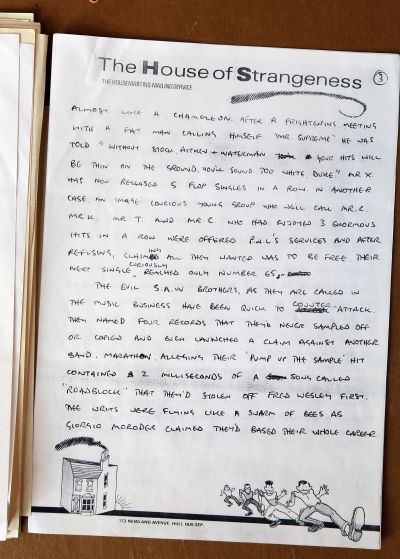 The House of Strangeness
3
THE HOUSEMARTINS MAILING SERVICE
ALMOST LIKE A CHAMELEON. AFTER A FRIGHTENING MEETING
WITH A FAT MAN CALLING HIMSELF "MR. SUPREME" HE WAS
TOLD "WITHOUT STOCK, AITKEN + WATERMAN YOUR HITS WILL
BE THIN ON THE GROUND. YOU'LL SOUND TOO WHITE, DUKE" MR X.
HAS NOW RELEASED 5 FLOP SINGLES IN A ROW. IN ANOTHER
CASE AN IMAGE CONCIOUS YOUNG GROUP WHO WE'LL CALL MR. C.
MR K. MR. T. AND MR C. WHO HAD ENJOYED 3 ENORMOUS
HITS IN A ROW WERE OFFERED P.W.L'S SERVICES AND AFTER
REFUSING, CLAIMING ALL THEY WANTED WAS TO BE FREE, THEIR
NEXT SINGLE CURIOUSLY REACHED ONLY NUMBER 65.
THE EVIL S.A.W BROTHERS, AS THEY ARE CALLED IN
THE MUSIC BUSINESS HAVE BEEN QUICK TO COUNTER ATTACK.
THEY NAMED FOUR RECORDS THAT THEY'D NEVER SAMPLED OFF
OR COPIED AND EVEN LAUNCHED A CLAIM AGAINST ANOTHER
BAND. MARATHON, ALLEGING THEIR 'PUMP UP THE SAMPLE' HIT
CONTAINED 2 MILLISECONDS OF A SONG CALLED
"ROADBLOCK" THAT THEY'D STOLEN OFF FRED WESLEY FIRST.
THE WRITS WERE FLYING LIKE A SWARM OF BEES AS
GIORGIO MORODER CLAIMED THEY'D BASED THEIR WHOLE CAREER
113 NEWLAND AVENUE, HULL, HU5 2EP.